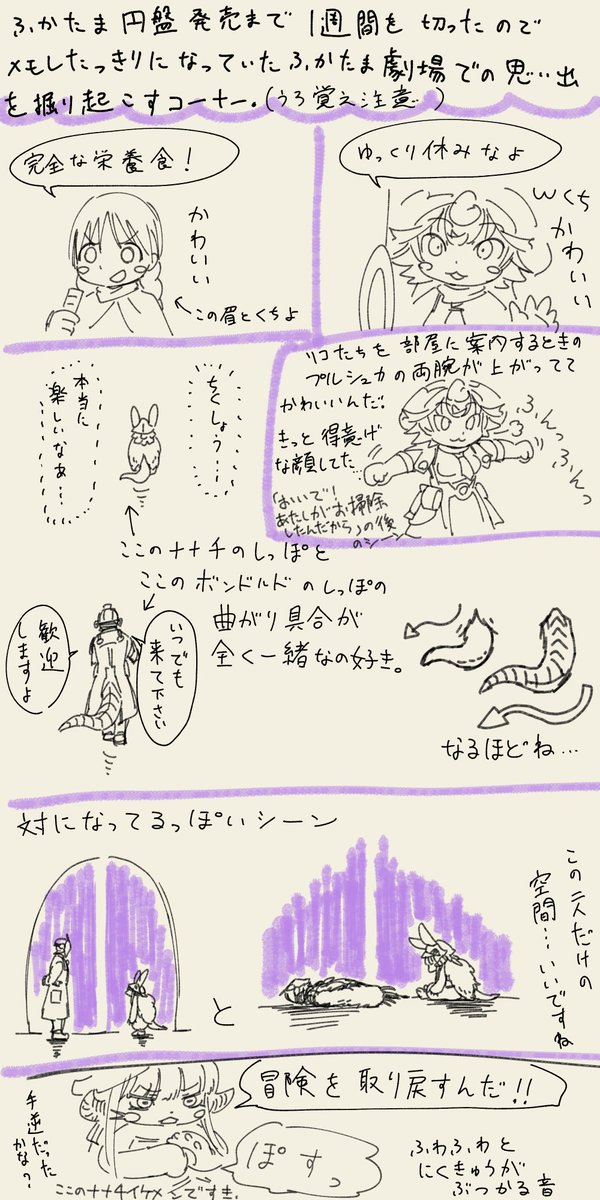 ふかたま円盤発売まで1週間を切ったので
メモしたっきりになっていたふかたま劇場での思い出
を掘り起こすコーナー。(うろ覚え注意)
完全な栄養食!
かわいい
←この眉とくちよ
ゆっくり休みなよ
Wくち
かわいい
ちくしょう…
本当に
楽しいなぁ…
リコたちを部屋に案内するときの
プルシュカの両腕が上がってて
かわいいんだ。
きっと得意げ
な顔してた…
「おいで!
あたしがお掃除
したんだから」の後
のシーン
ふんっ
ふんっ
ここのナナチのしっぽと
ここのボンドルドのしっぽの
曲がり具合が
全く一緒なの好き。
いつでも
来て下さい
歓迎
しますよ
なるほどね…
対になってるっぽいシーン
と
この二人だけの
空間…いいですね
冒険を取り戻すんだ!!
手逆だった
かな?
ぽすっ
ここのナナチイケメンですき。
ふわふわと
にくきゅうが
ぶつかる音